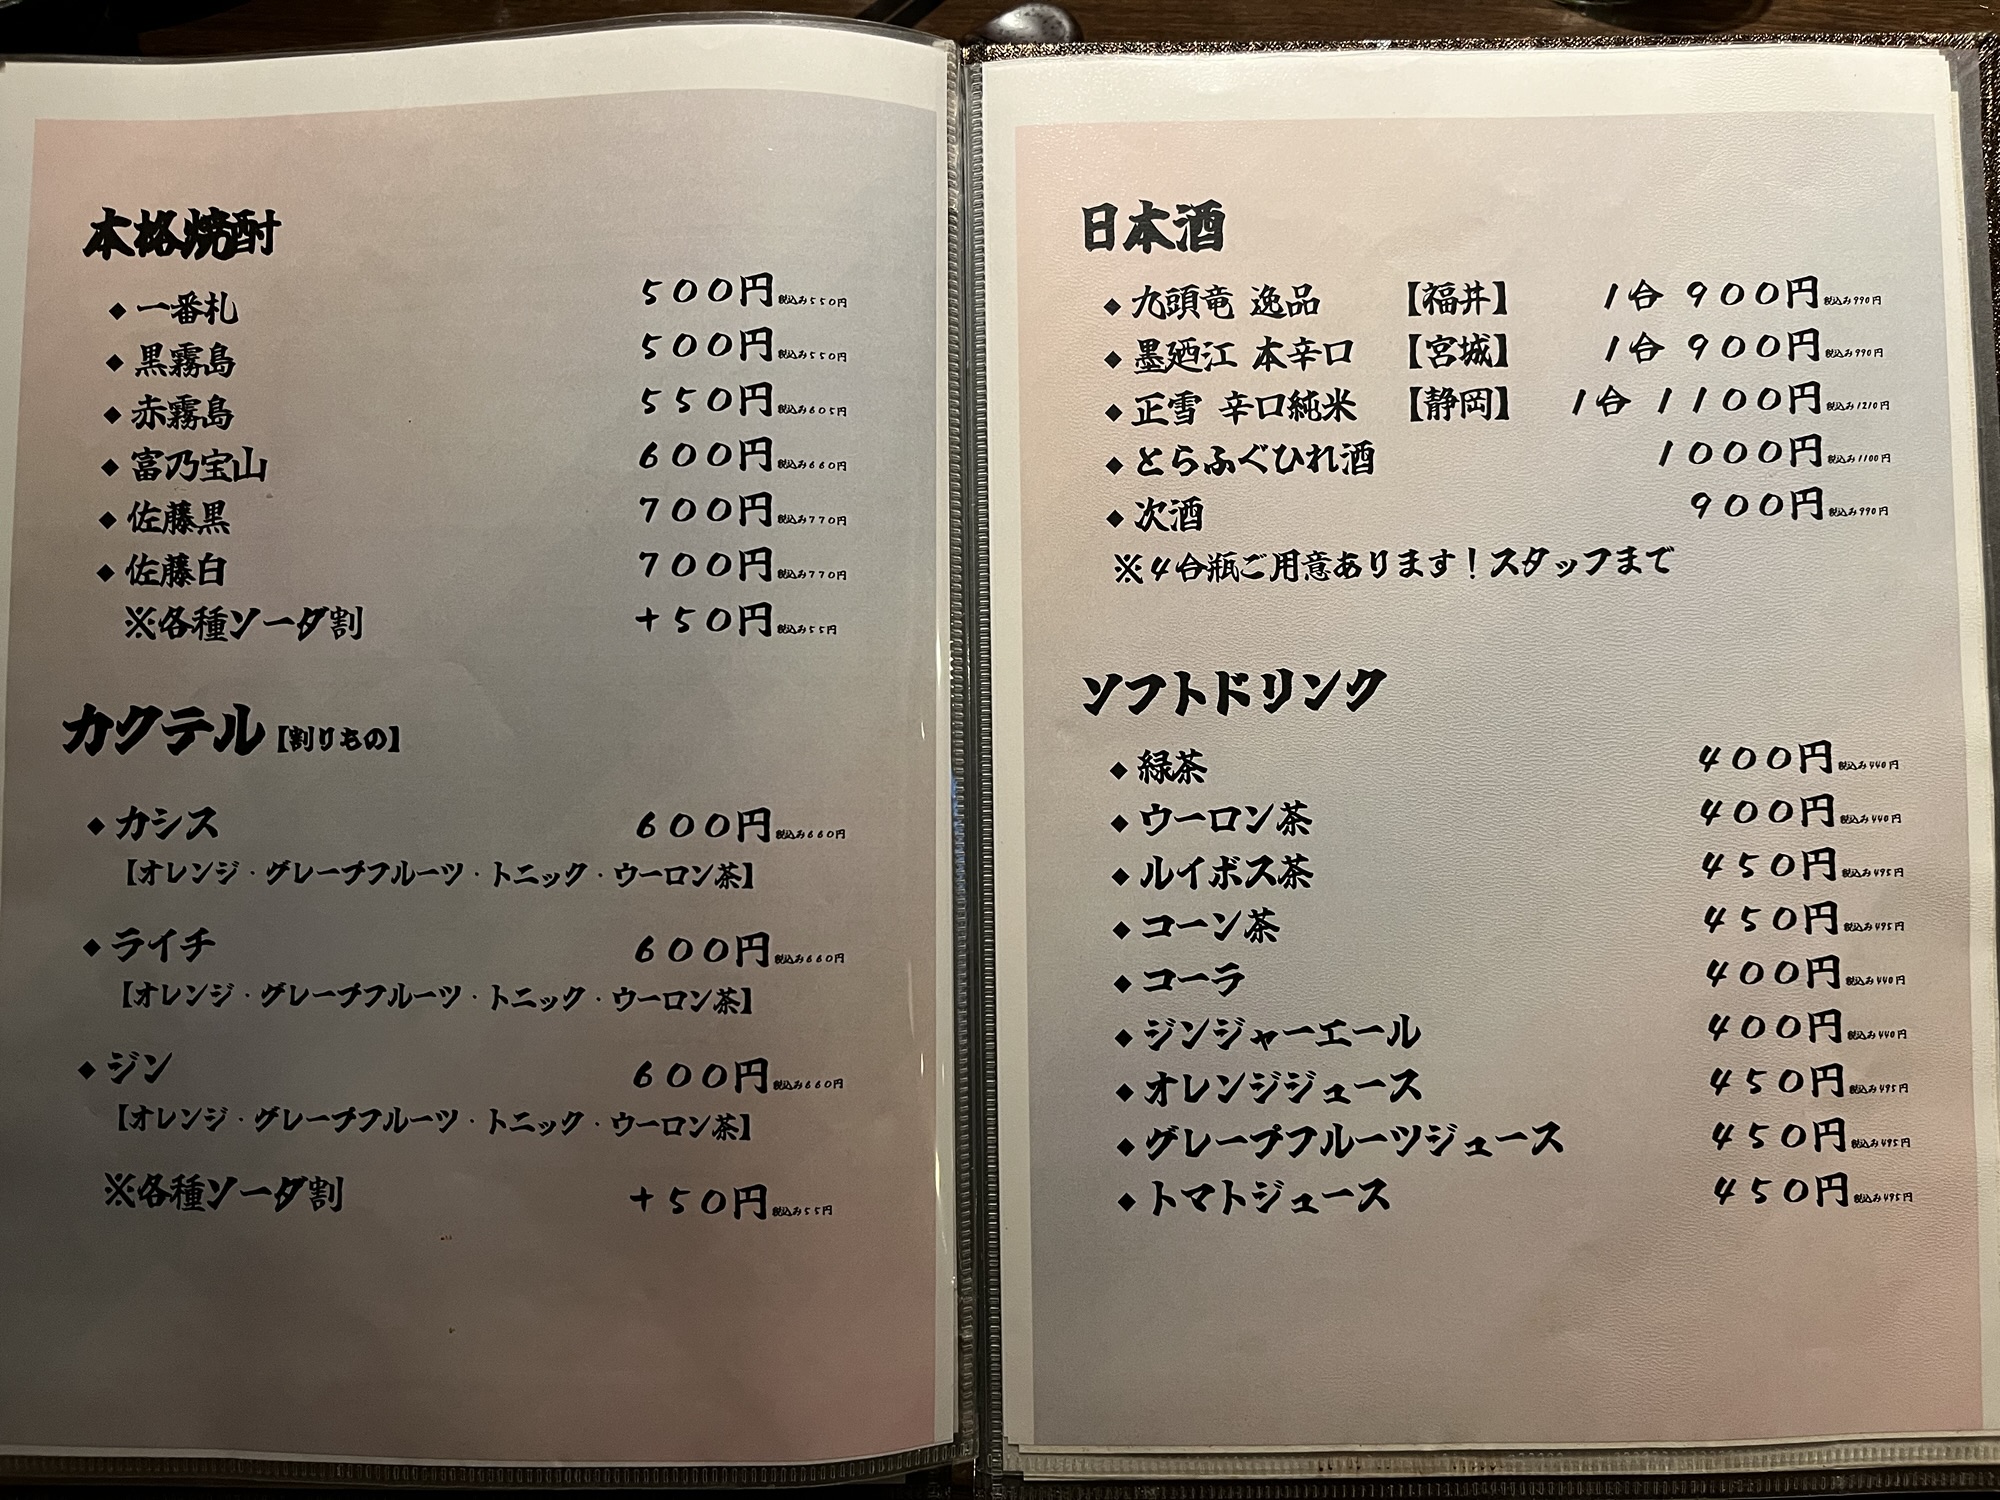 本格焼酎
◆一番札 500円 税込み550円
◆黒霧島 500円 税込み550円
◆赤霧島 550円 税込み605円
◆富乃宝山 600円 税込み660円
◆佐藤黒 700円 税込み770円
◆佐藤白 700円 税込み770円
※各種ソーダ割 +50円 税込み55円
カクテル【割りもの】
◆カシス 600円 税込み660円
【オレンジ・グレープフルーツ・トニック・ウーロン茶】
◆ライチ 600円 税込み660円
【オレンジ・グレープフルーツ・トニック・ウーロン茶】
◆ジン 600円 税込み660円
【オレンジ・グレープフルーツ・トニック・ウーロン茶】
※各種ソーダ割 +50円 税込み55円
日本酒
◆九頭竜 逸品 【福井】 1合 900円 税込み990円
◆墨廼江 本辛口 【宮城】 1合 900円 税込み990円
◆正雪 辛口純米 【静岡】 1合 1100円 税込み1210円
◆とらふぐひれ酒 1000円 税込み1100円
◆次酒 900円 税込み990円
※4合瓶ご用意あります!スタッフまで
ソフトドリンク
◆緑茶 400円 税込み440円
◆ウーロン茶 400円 税込み440円
◆ルイボス茶 450円 税込み495円
◆コーン茶 450円 税込み495円
◆コーラ 400円 税込み440円
◆ジンジャーエール 400円 税込み440円
◆オレンジジュース 450円 税込み495円
◆グレープフルーツジュース 450円 税込み495円
◆トマトジュース 450円 税込み495円